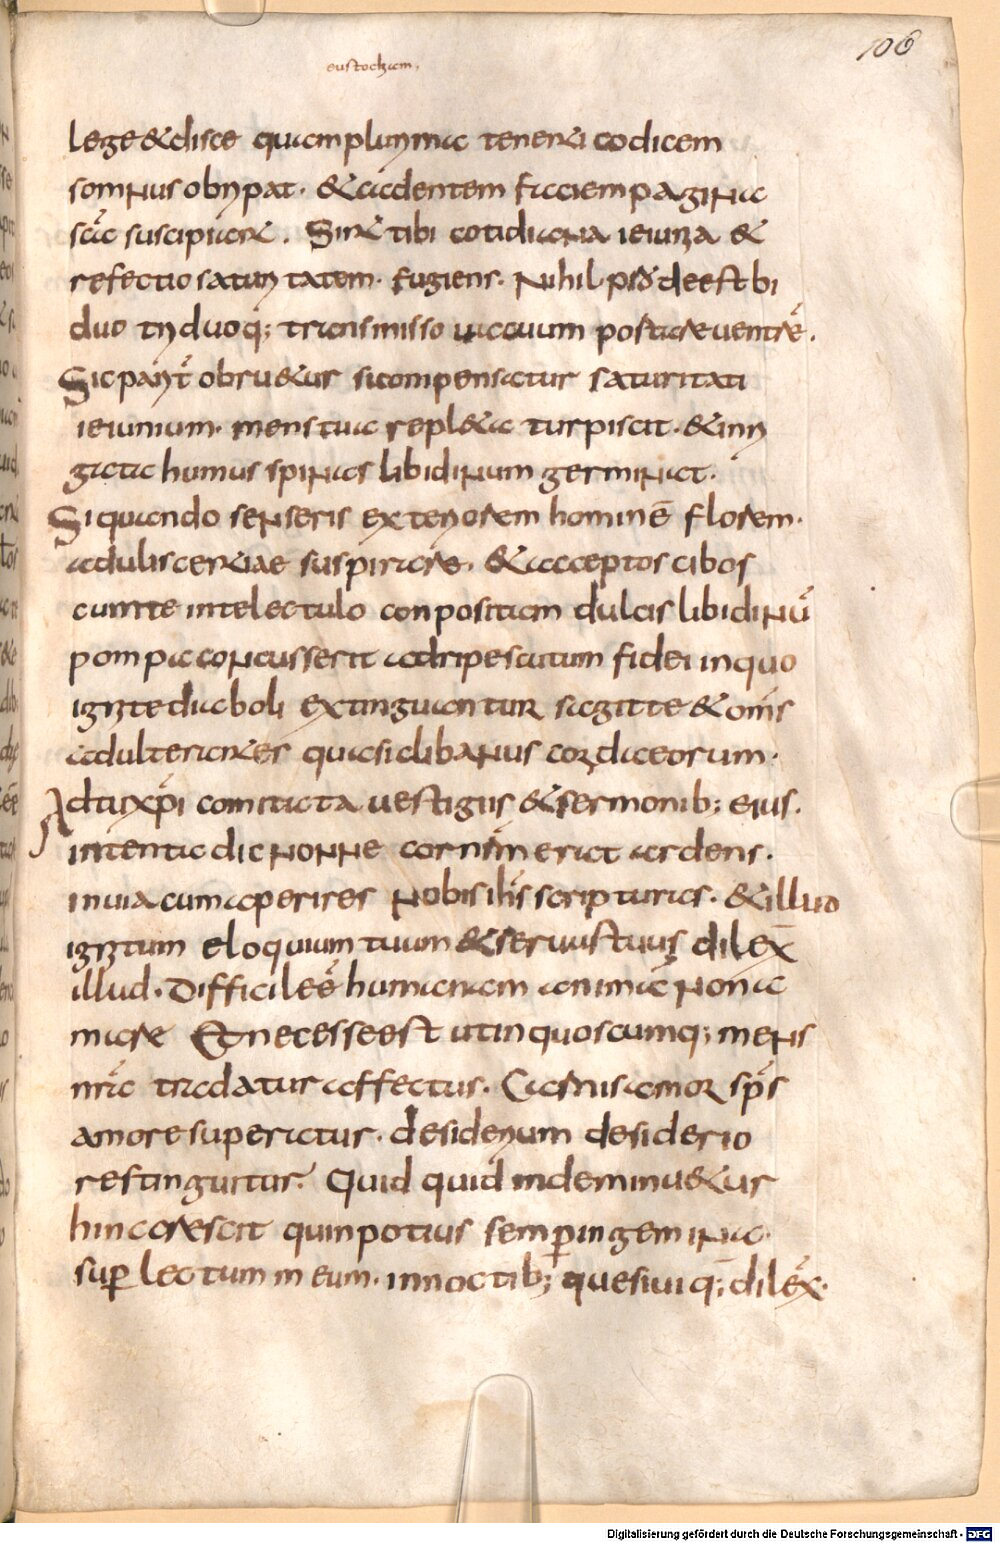 106
eustochium.
lege & disce quam plurima teneri codicem
somnus obripat. & cadentem faciem pagina
scā suscipiat &. Sint tibi cotidiana ieiunia &
refectio satury tatem fugiens. Nihil p̄d deest bi
duo triduoq; transmisso uacuum portare uentrē.
Sic pariƭ obru&ur si compensatur saturitati
ieiunium. mens tua repl&a turpiscit. & inri
gata humus spinas libidinum germinat.
Si quando senseris exteriorem hominē florem.
aduliscentiae suspirare. & acceptos cibos
cum te in lectulo conpositam dulcis libidinū
pompa concusserit adripe scutum fidei in quo
ignite diaboli extinguontur sagitte & om̄s
adulterantes quasi clibanus corda eorum.
Ad tu xp̄i comitata uestigiis & sermonib; eius.
intenta dic nonne cor nr̄m erat ardens.
in uia cum aperires nobis ih̄s scripturas. & illud
ignitum eloquium tuum & seruus tuus dilex̄
illud. Difficile ē humanam animā non a
mare Et necesse est ut in quoscumq; mens
nr̄a tradatur affectus. Carnis amor sp̄s
amore superatur. desiderium desiderio
restinguitur. Quid quid inde minu&ur
hinc crescit quin potius semp̄ ingemina.
sup̄ lectum meum. in noctib; quesiui q; dilex̄.
Digitalisierung gefördert durch die Deutsche Forschungsgemeinschaft - DFG